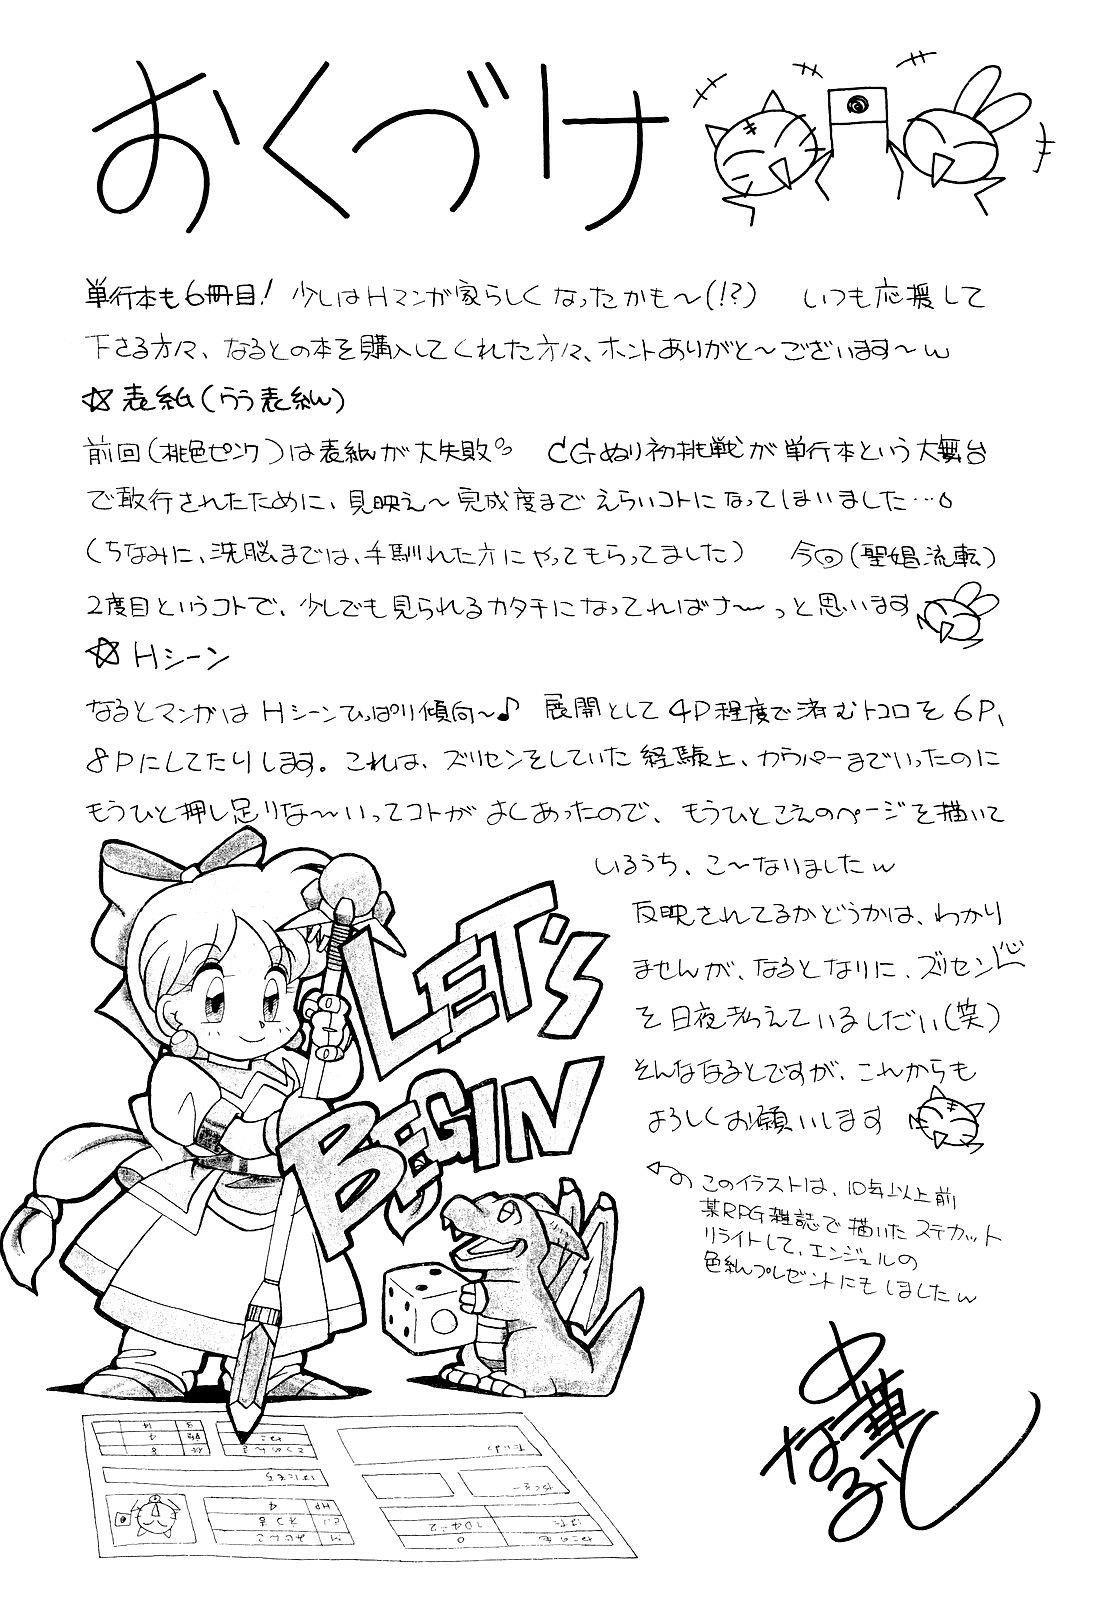 おくづけ
単行本も6冊目! 少しはHマンガ家らしくなったかも〜(!?) いつも応援して
下さる方々、なるとの本を購入してくれた方々、ホントありがと〜ございます〜w
☆表紙(うら表紙)
前回(桃色ピンク)は表紙が大失敗。 CGぬり初挑戦が単行本という大舞台
で敢行されたために、見映え〜完成度までえらいコトになってしまいました…。
(ちなみに、洗脳までは、手馴れた方にやってもらってました) 今回(聖娼流転)
2度目というコトで、少しでも見られるカタチになってればナ〜っと思います
☆Hシーン
なるとマンガはHシーンひっぱり傾向〜♪ 展開として4P程度で済むトコロを6P、
8Pにしてたりします。これは、ズリセンをしていた経験上、カウパーまでいったのに
もうひと押し足りな〜いってコトがよくあったので、もうひとこえのページを描いて
いるうち、こ〜なりましたw
反映されてるかどうかは、わかり
ませんが、なるとなりに、ズリセン
を日夜考えているしだい(笑)
そんななるとですが、これからも
よろしくお願いします
LET'S
BEGIN
このイラストは、10年以上前
某RPG雑誌で描いたステカット
リライトして、エンジェルの
色紙プレゼントにもしましたw
中華
なると